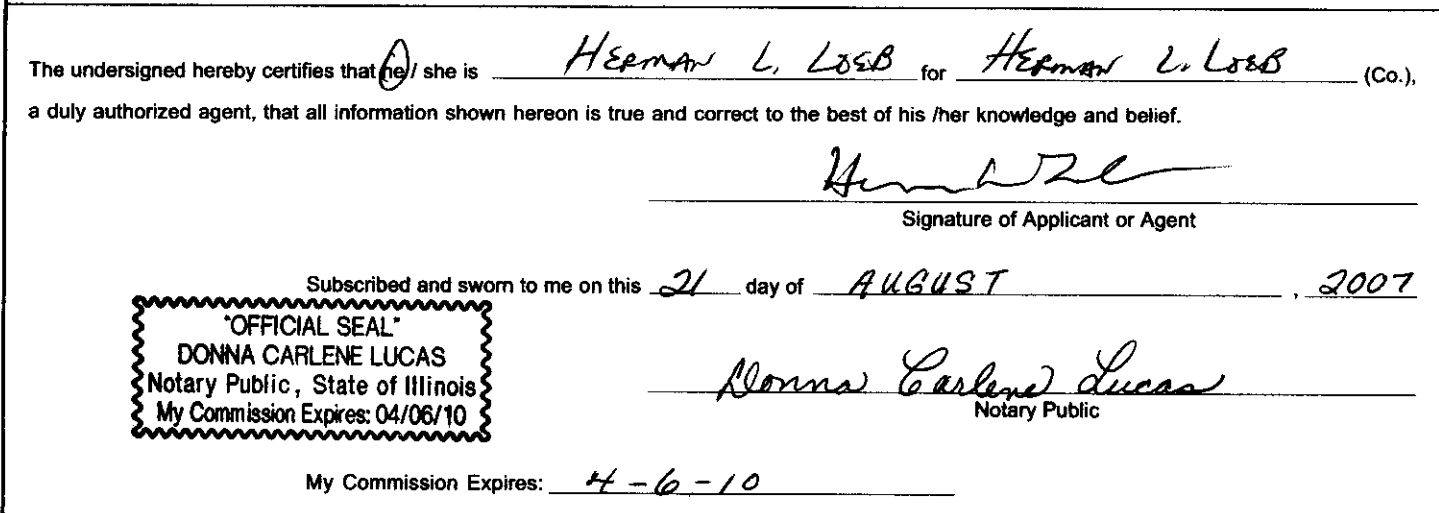 The undersigned hereby certifies that he / she is HERMAN L. LOEB for HERMAN L. LOEB (Co.),
a duly authorized agent, that all information shown hereon is true and correct to the best of his /her knowledge and belief.
Signature of Applicant or Agent
Subscribed and sworn to me on this 21 day of AUGUST , 2007
"OFFICIAL SEAL"
DONNA CARLENE LUCAS
Notary Public, State of Illinois
My Commission Expires: 04/06/10
Donna Carlene Lucas
Notary Public
My Commission Expires: 4-6-10